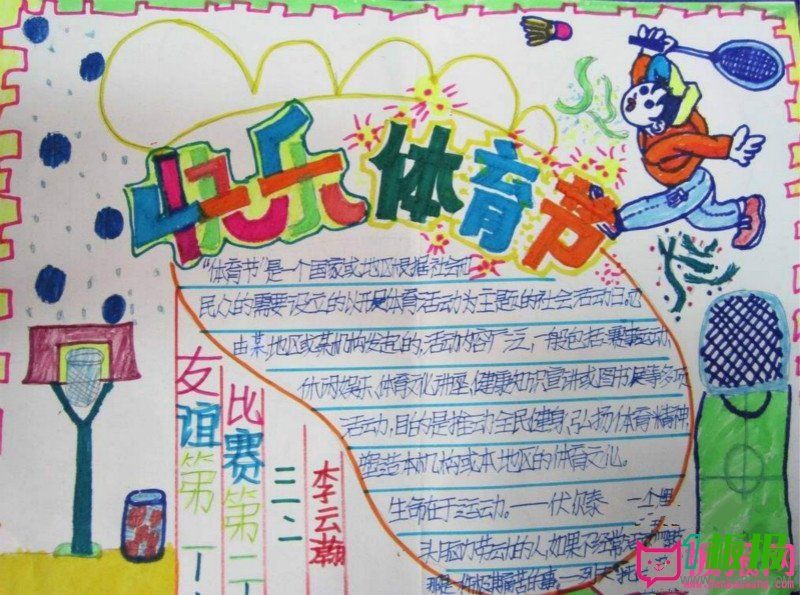 快乐体育节
"体育节"是一个国家或地区根据社会和
民众的需要设立的以开展体育活动为主题的社会活动日。
由某地区或某机构发起的,活动内容广泛,一般包括:赛事活动、
休闲娱乐、体育文化讲座、健康知识宣讲或图书展等多项
活动,目的是推动全民健身,弘扬体育精神,
塑造本机构或本地区的体育文化。
生命在于运动。——伏尔泰 一个埋
头脑力劳动的人,如果不经常活动
友谊第一
比赛第二
三一二
李云瀚
板报网